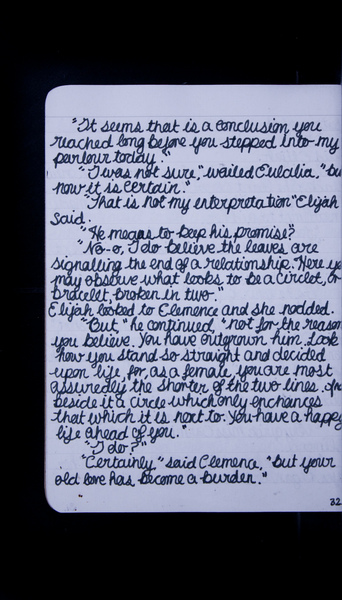 "It seems that is a conclusion you
reached long before you stepped into my
parlour today."
"I was not sure," wailed Eulalia, "bu
now it is certain."
"That is not my interpretation" Elijah
said.
"He means to keep his promise?
"No-o, I do believe the leaves are
signalling the end of a relationship. Here yo
may observe what looks to be a circlet, or
bracelet, broken in two."
Elijah looked to Clemence and she nodded.
"But" he continued, "not for the reason
you believe. You have outgrown him. Look
how you stand so straight and decided
upon life, for, as a female, you are most
assuredly the shorter of the two lines. An
beside it a circle which only enchances
that which it is next to. You have a happy
life ahead of you."
"I do?"
"Certainly," said Clemence, "but your
old love has become a burden."
"
32